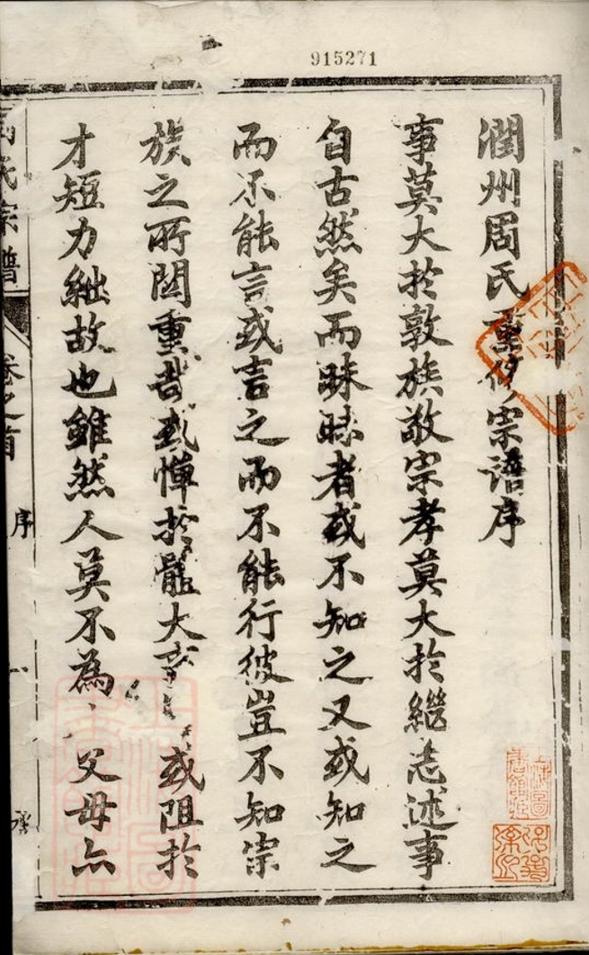 915271
潤州周氏重修宗譜序
事莫大於敦族敬宗孝莫大於繼志述事
自古然矣而昧昧者或不知之又或知之
而不能言或言之而不能行彼豈不知宗
族之所関重哉或憚於體大 或阻於
才短力絀故也雖然人莫不為 父母亦
周氏宗譜
卷之首
序
一